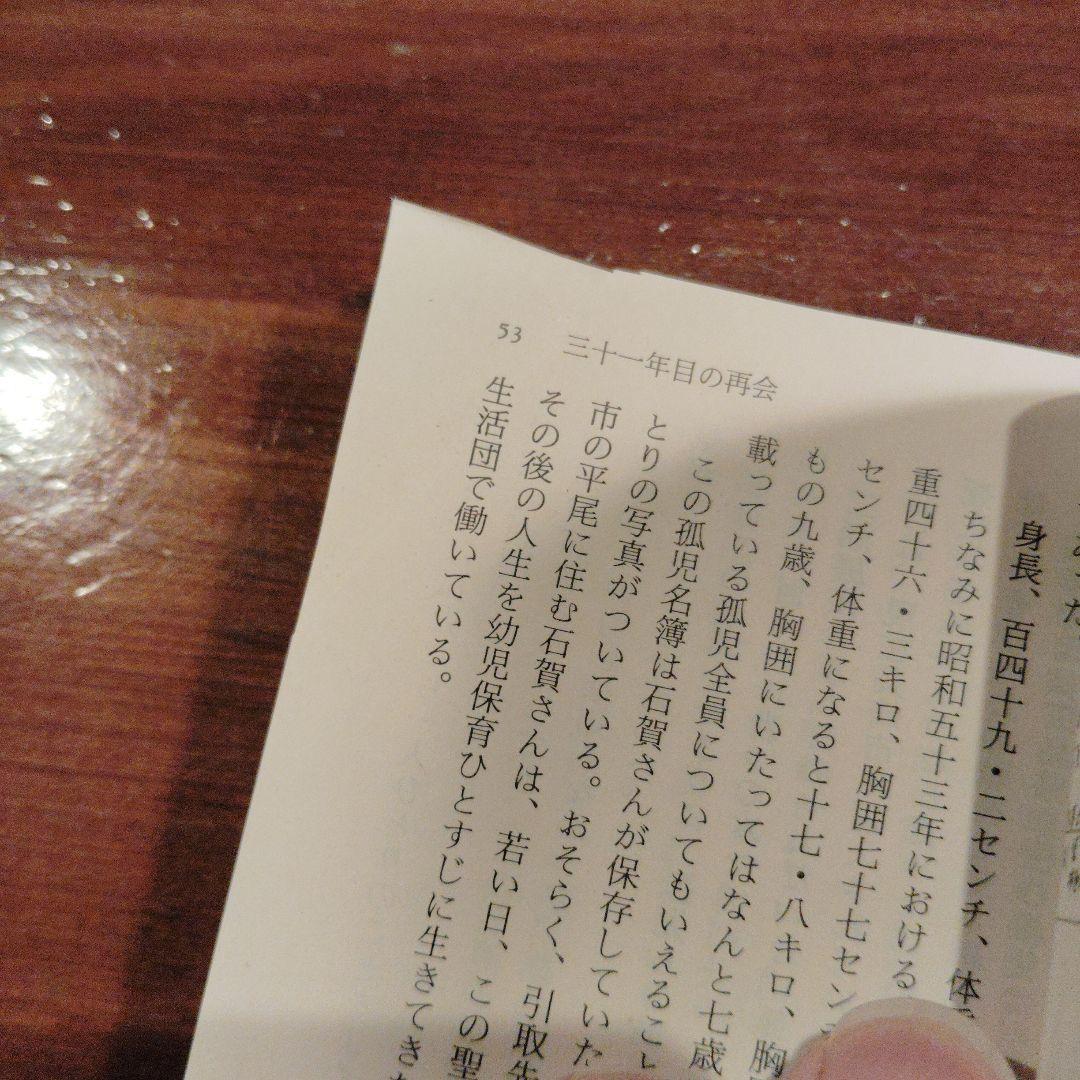 53
三十一年目の再会
身長、百四十九・二センチ、体
ちなみに昭和五十三年における
重四十六・三キロ、胸囲七十七セン
センチ、体重になると十七・八キロ、胸
もの九歳、胸囲にいたってはなんと七歳
載っている孤児全員についてもいえること
この孤児名簿は石賀さんが保存していた
とりの写真がついている。おそらく、引取先
市の平尾に住む石賀さんは、若い日、この聖
その後の人生を幼児保育ひとすじに生きてき
生活団で働いている。